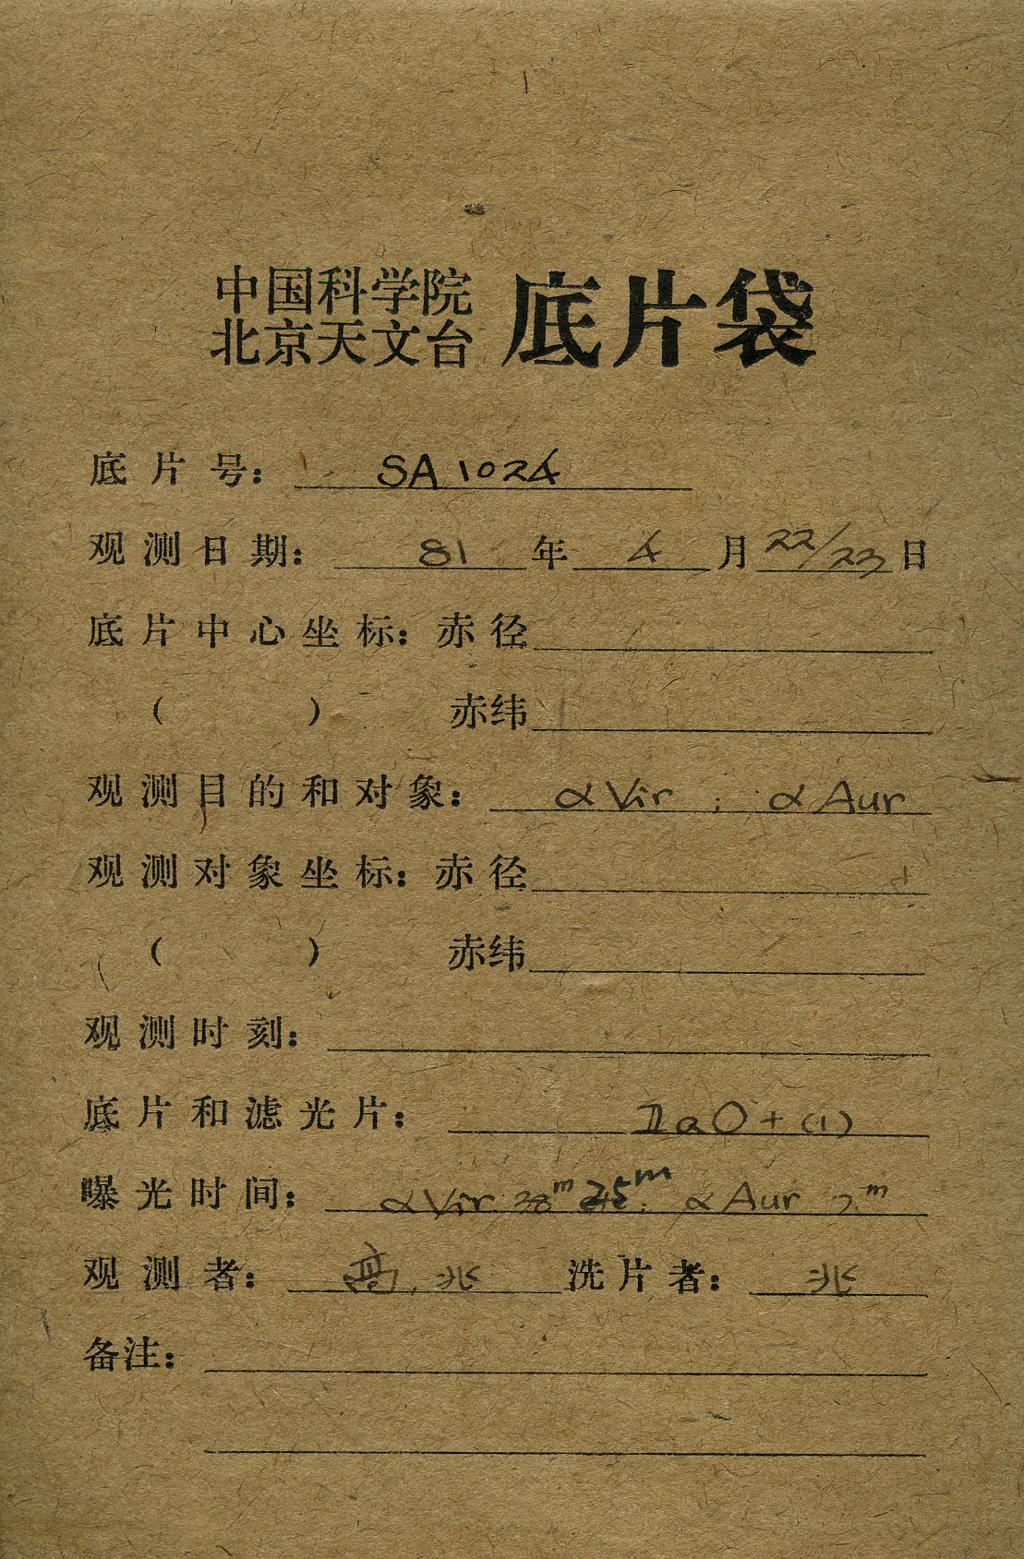 中国科学院
北京天文台 底片袋
底片号: SA 1024
观测日期: 81 年 4 月 22/23 日
底片中心坐标: 赤径
( ) 赤纬
观测目的和对象: α Vir ; α Aur
观测对象坐标: 赤径
( ) 赤纬
观测时刻:
底片和滤光片: IIaO + (1)
曝光时间: α Vir 25m; α Aur 2m
观测者: 高, 兆 洗片者: 兆
备注: